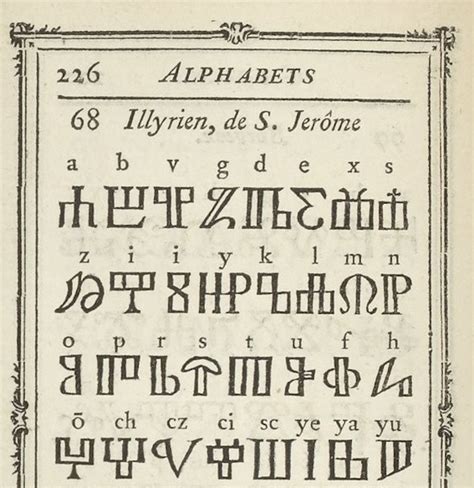 226 ALPHABETS
68 Illyrien, de S. Jerôme
a b v g d e x s
Ⰰ Ⰱ Ⰲ Ⰳ Ⰴ Ⰵ Ⰶ Ⰷ
z i i y k l m n
Ⰸ Ⰺ Ⰻ Ⰼ Ⰽ Ⰾ Ⰿ Ⱀ
o p r s t u f h
Ⱁ Ⱂ Ⱃ Ⱄ Ⱅ Ⱆ Ⱇ Ⱈ
ō ch cz ci sc ye ya yu
Ⱉ Ⱋ Ⱌ Ⱍ Ⱎ Ⱐ Ⱑ Ⱓ